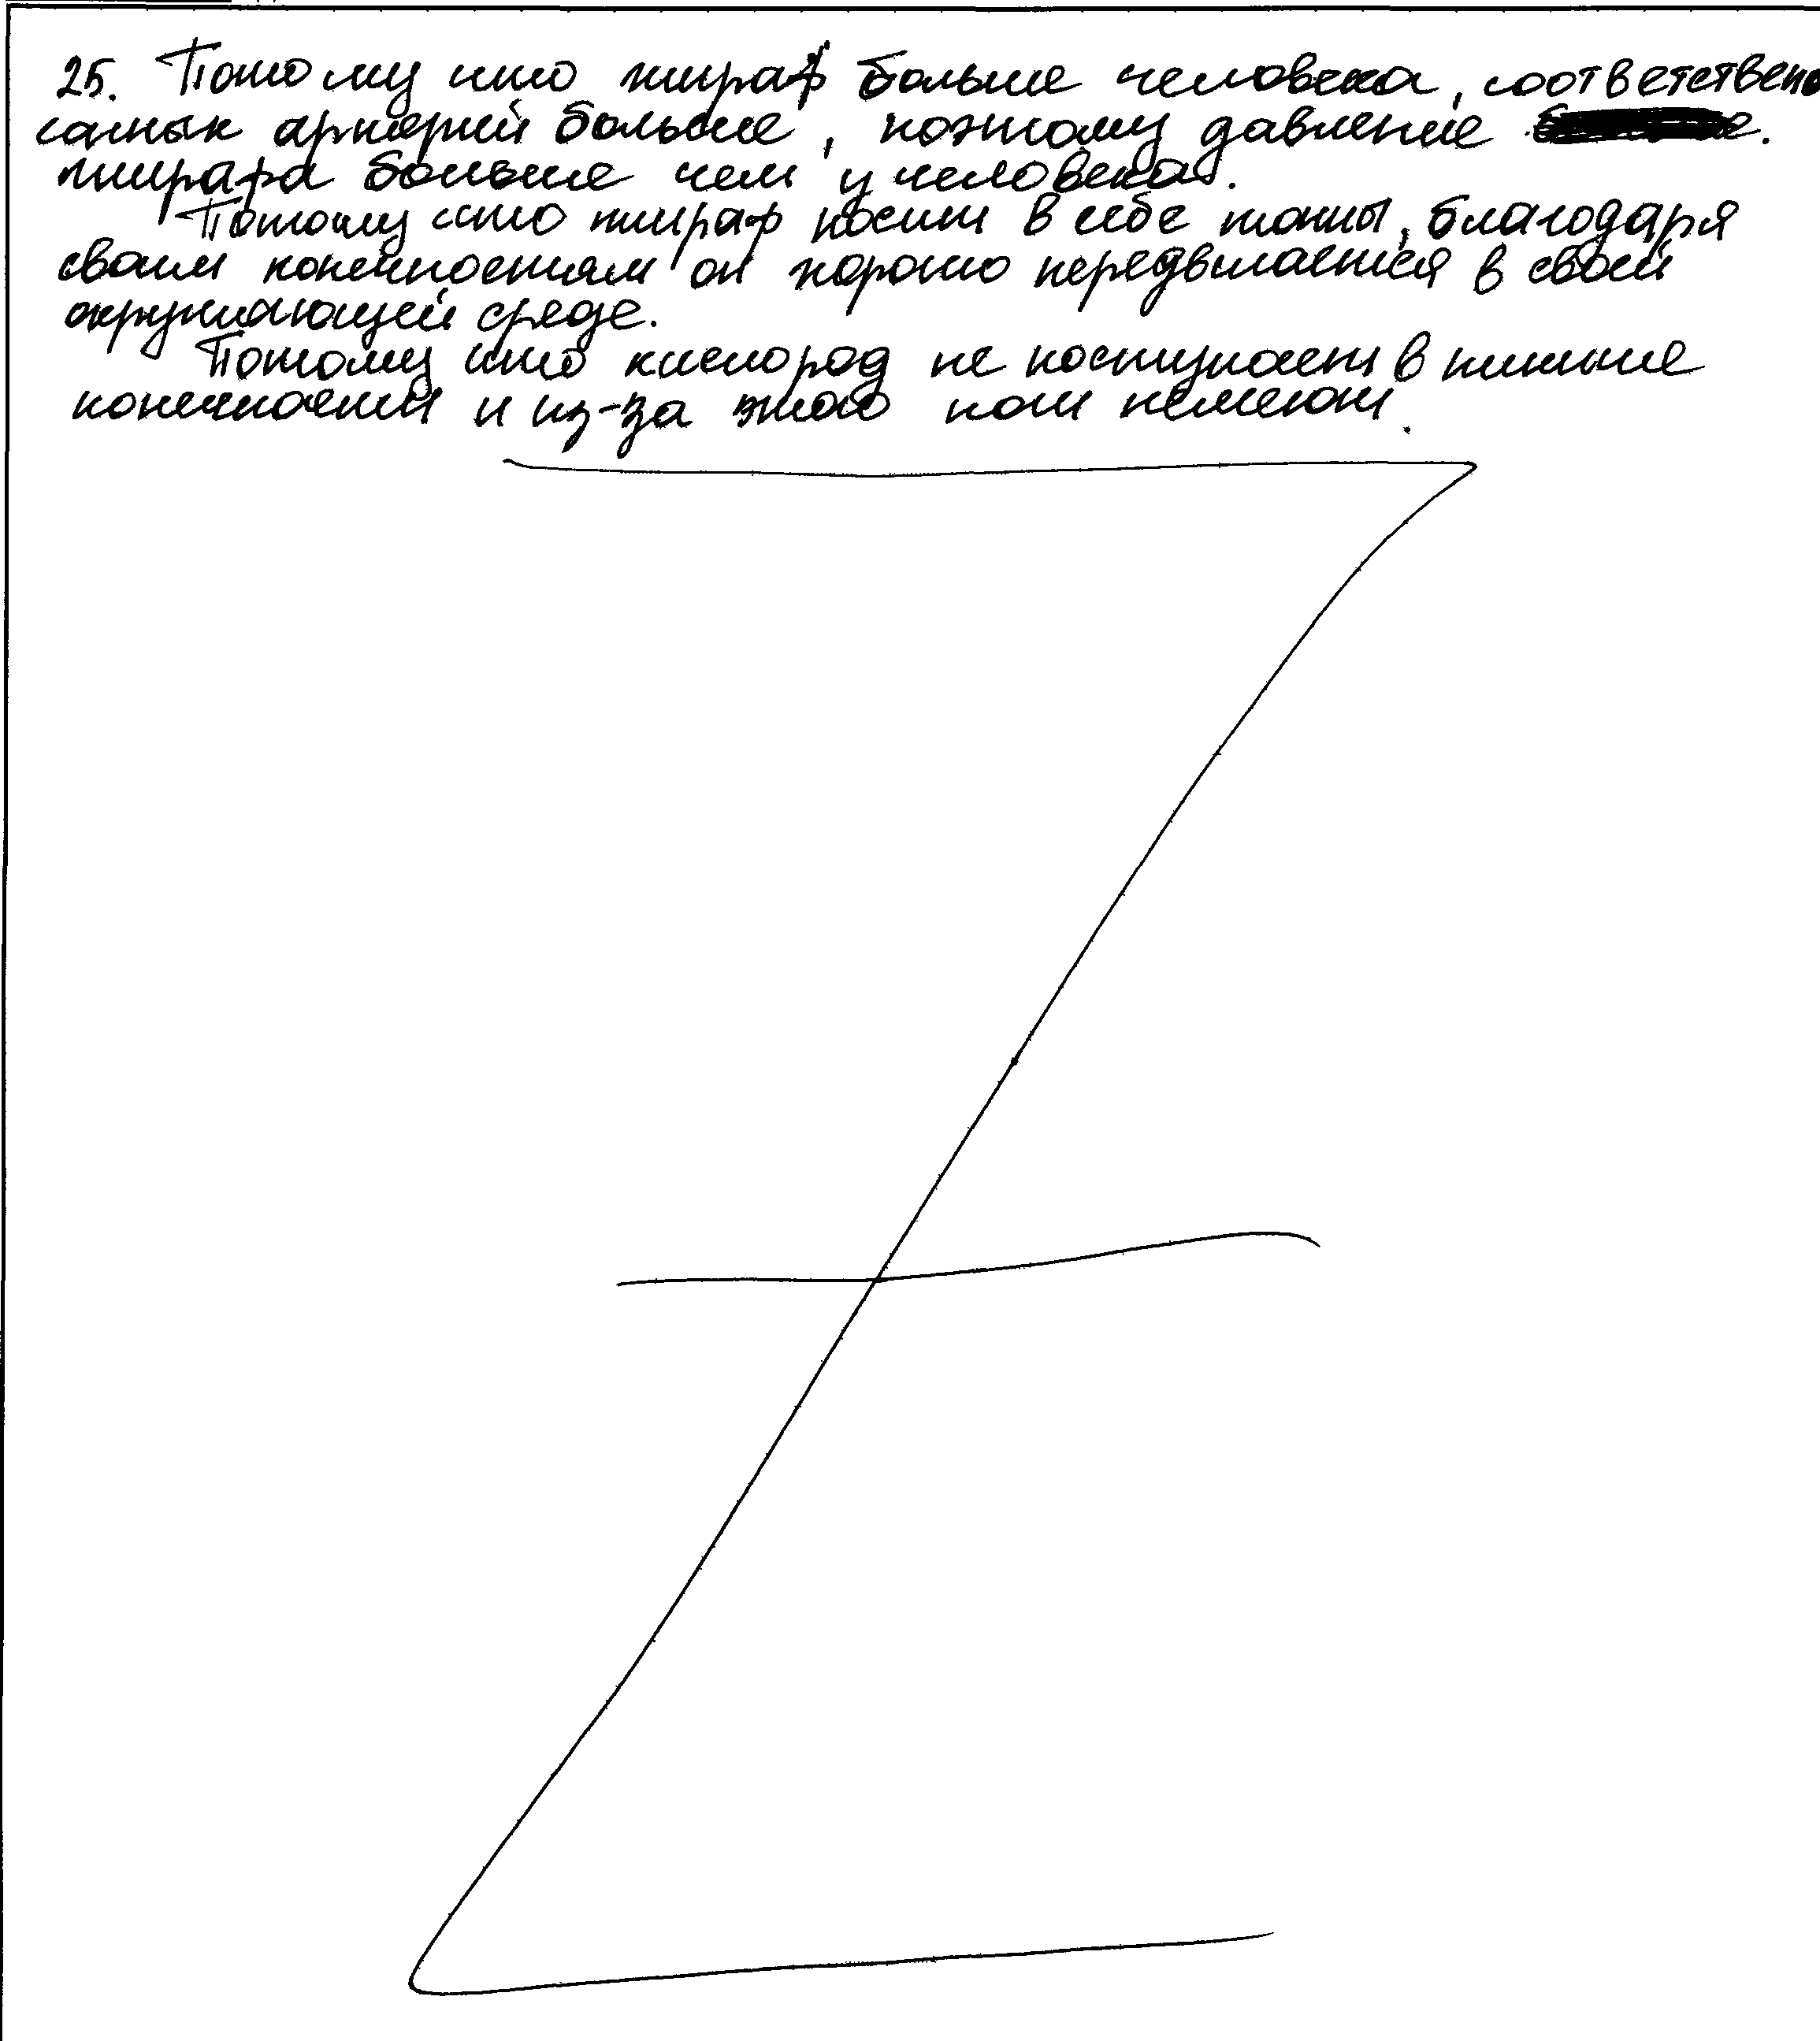 25. Потому что жираф больше человека, соответствено
самых артерий больше, поэтому давление
жирафа больше чем у человека.
Потому что жираф носит в себе тонны, благодаря
своим конечностям он хорошо передвигается в своей
окружающей среде.
Потому что кислород не поступает в нижние
конечности и из-за этого ноги немеют.